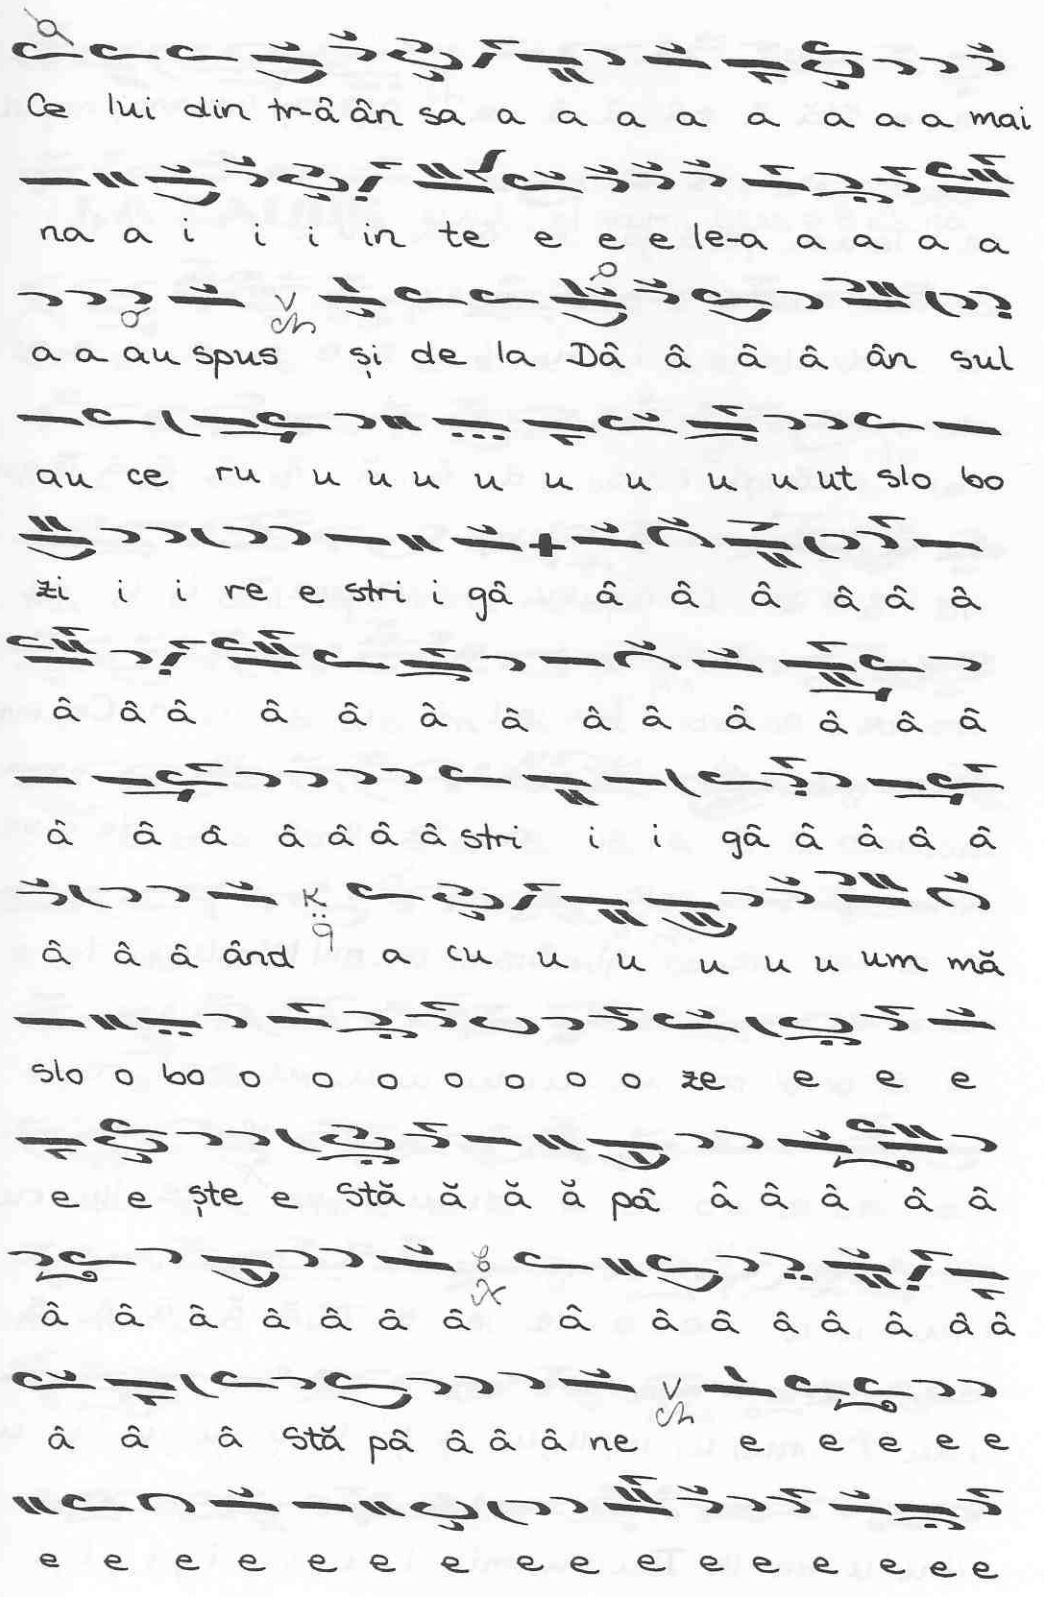 Ce lui din tr-â ân sa a a a a a a a a mai
na a i i i in te e e e le-a a a a a
a a au spus și de la Dâ â â â ân sul
au ce ru u u u u u u u u ut slo bo
zi i i re e stri i gâ â â â â â â
â â â â â â â â â â â â â
â â â â â â â stri i i gâ â â â â
â â â ând a cu u u u u u um mă
slo o bo o o o o o o o ze e e e
e e ște e Stă ă ă ă pâ â â â â â
â â â â â â â â â â â â â â
â â â Stă pâ â â â ne e e e e e
e e e e e e e e e e e e e e e